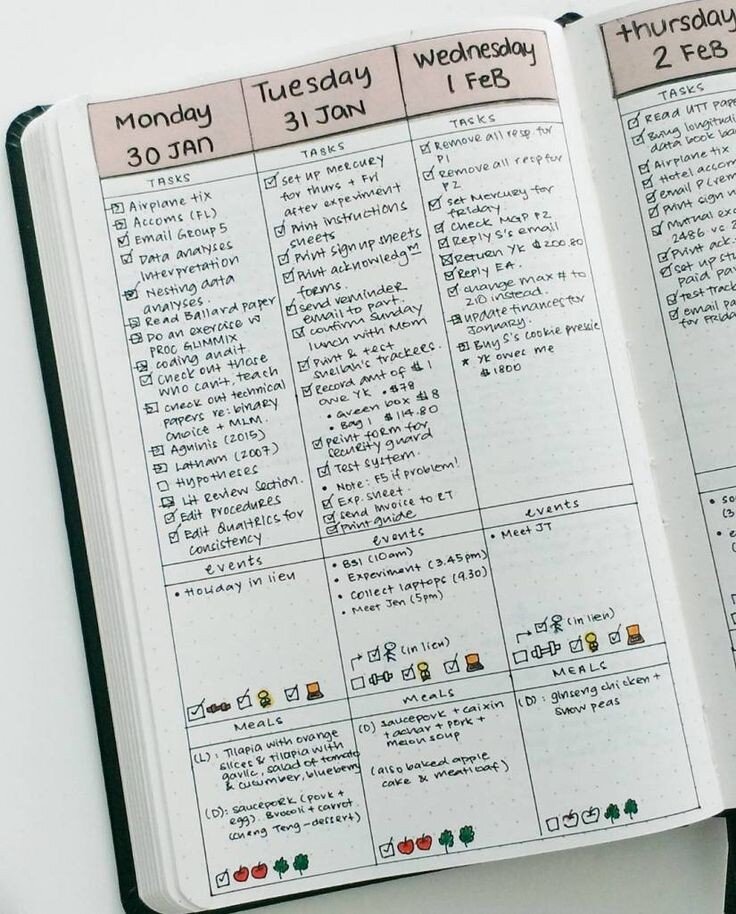 Monday
30 JAN
TASKS
Airplane tix
Accoms (FL)
Email Group 5
Data analyses
interpretation
Nesting data
analyses.
Read Ballard paper
Do an exercise w
PROC GLIMMIX
coding audit.
Check out those
who can't, teach
check out technical
papers re: binary
choice + MLM.
Aguinis (2015)
Latham (2007)
Hypotheses
Lit Review Section.
Edit Procedures
Edit Qualtrics for
consistency
events
• Holiday in lieu
MEALS
(L): Tilapia with orange
slices & tilapia with
garlic, salad of tomato
& cucumber, blueberry
(D): saucepork (pork +
egg). Brocoli + carrot.
(cheng Teng - dessert)
Tuesday
31 JAN
TASKS
set up MERCURY
for thurs + Fri
after experiment
Print instructions
sheets
Print signup sheets
Print acknowledgm
forms.
send reminder
email to part.
confirm Sunday
lunch with Mom
Print & test
trackers.
Record amt of $ I
owe YK • $78
• Green box $18
• Bag 1 $114.80
print form for
security guard
Test system.
• Note: F5 if problem!
Exp. sheet.
Send invoice to RT
Print guide
events
• BSI (10am)
• Experiment (3.45pm)
• Collect laptops (9.30)
• Meet Jen (5pm)
(in lieu)
MEALS
(D) saucepork + caixin
+ achar + pork +
melon soup
(also baked apple
cake & meatloaf)
Wednesday
1 FEB
TASKS
Remove all resp. for
P1
Remove all resp for
P2
Set Mercury for
friday.
Check MGP P2
Reply S's email
Return YK $200.80
Reply EA.
change max # to
210 instead.
update finances for
January.
Buy S's cookie pressie
* YK owes me
$1800
events
• Meet JT
(in lieu)
MEALS
(D): ginseng chicken +
snow peas
thursday
2 FEB
TASKS
Read UTT pape
Buing longitudi
data book
Airplane tix
Hotel accom
email P
Print sign
Mutual ex
2486 vs
Print ack.
set up
paid
test track
email pa
for Frida